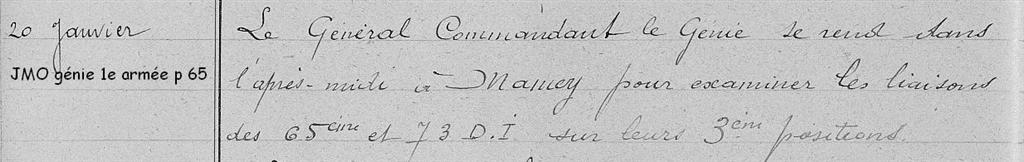 20 Janvier
JMO génie 1e armée p 65
Le Général Commandant le Génie se rend dans
l'après-midi à Mamey pour examiner les liaisons
des 65ème et 73 D.I sur leurs 3ème positions.